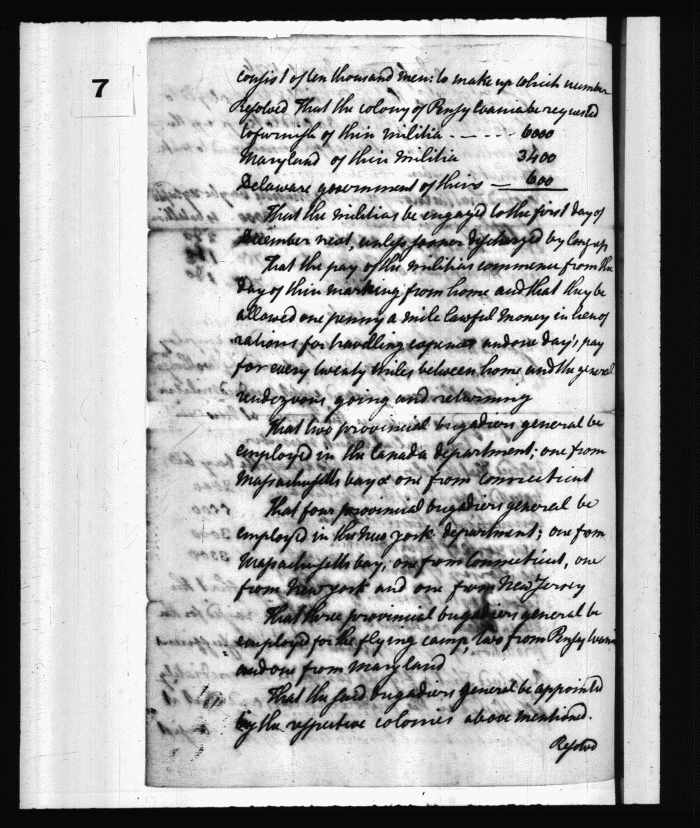 7
consist of ten thousand men: to make up which number
Resolved That the colony of Pensylvania be requested
to furnish of their militia - - - - - 6000
Maryland of their militia 3400
Delaware government of theirs - 600
That the militias be engaged to the first day of
December next, unless sooner discharged by Congress
That the pay of the militias commence from the
day of their marching from home and that they be
allowed one penny a mile lawful money in lieu of
rations for travelling expences and one day's pay
for every twenty miles between home and the general
rendezvous going and returning
That two provincial brigadiers general be
employed in the Canada department; one from
Massachusetts bay & one from Connecticut
That four provincial brigadiers general be
employed in the New york department; one from
Massachusetts bay, one from Connecticut, one
from New york and one from New Jersey
That three provincial brigadiers general be
employed for the flying camp, two from Pensylvania
and one from Maryland
That the said brigadiers general be appointed
by the respective colonies above mentioned.
Resolved